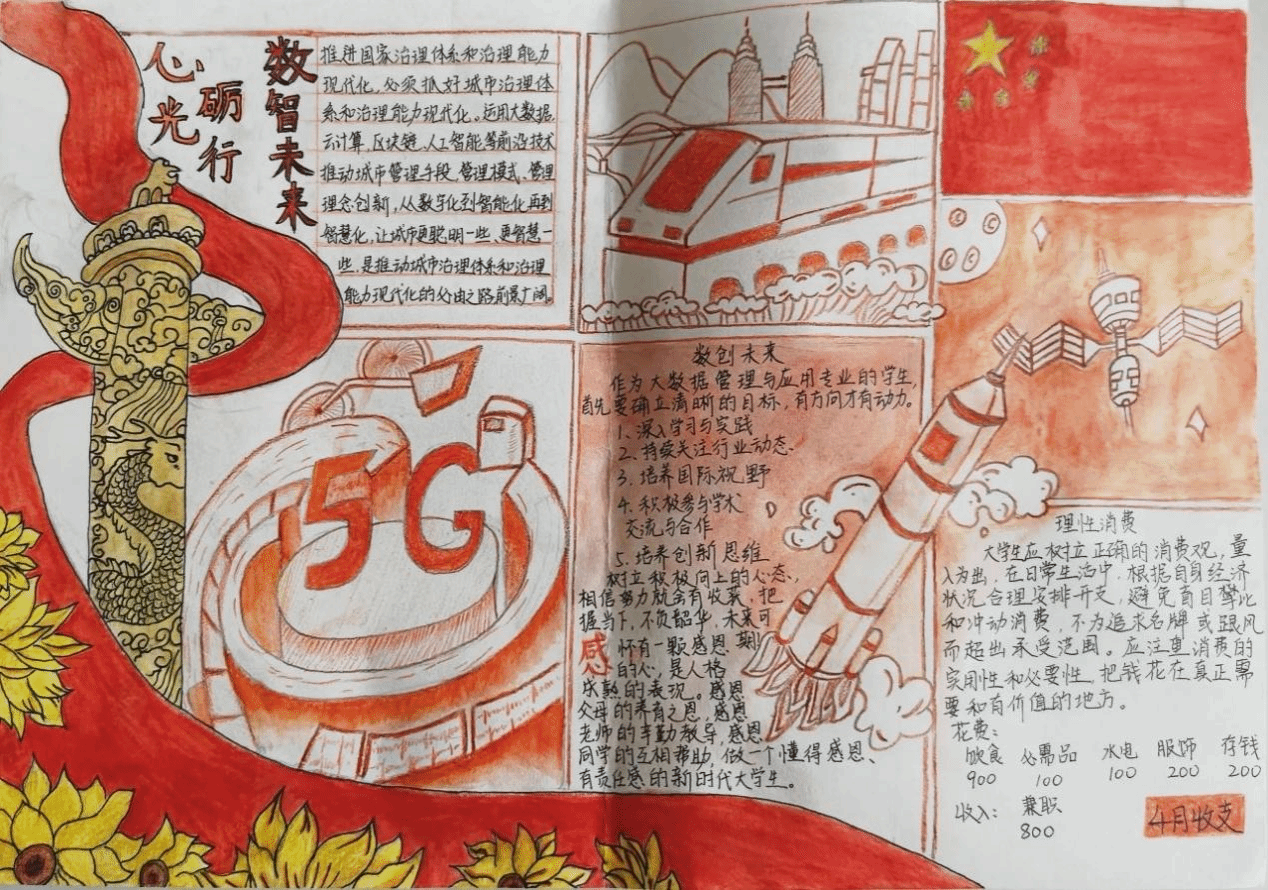 数智未来
心光
砺行
推进国家治理体系和治理能力
现代化，必须抓好城市治理体
系和治理能力现代化。运用大数据、
云计算、区块链、人工智能等前沿技术
推动城市管理手段、管理模式、管理
理念创新，从数字化到智能化再到
智慧化，让城市更聪明一些、更智慧一
些，是推动城市治理体系和治理
能力现代化的必由之路前景广阔。
5G
数创未来
作为大数据管理与应用专业的学生，
首先要确立清晰的目标，有方向才有动力。
1、深入学习与实践
2、持续关注行业动态、
3、培养国际视野
4、积极参与学术
交流与合作
5、培养创新思维
树立积极向上的心态，
相信努力就会有收获，把
握当下，不负韶华，未来可
期！
感怀有一颗感恩
的心，是人格
成熟的表现。感恩
父母的养育之恩，感恩
老师的辛勤教导，感恩
同学的互相帮助，做一个懂得感恩、
有责任感的新时代大学生。
理性消费
大学生应树立正确的消费观，量
入为出，在日常生活中，根据自身经济
状况合理安排开支，避免盲目攀比
和冲动消费，不为追求名牌或跟风
而超出承受范围。应注重消费的
实用性和必要性，把钱花在真正需
要和有价值的地方。
花费：
饮食 必需品 水电 服饰 存钱
900 100 100 200 200
收入： 兼职
800
4月收支